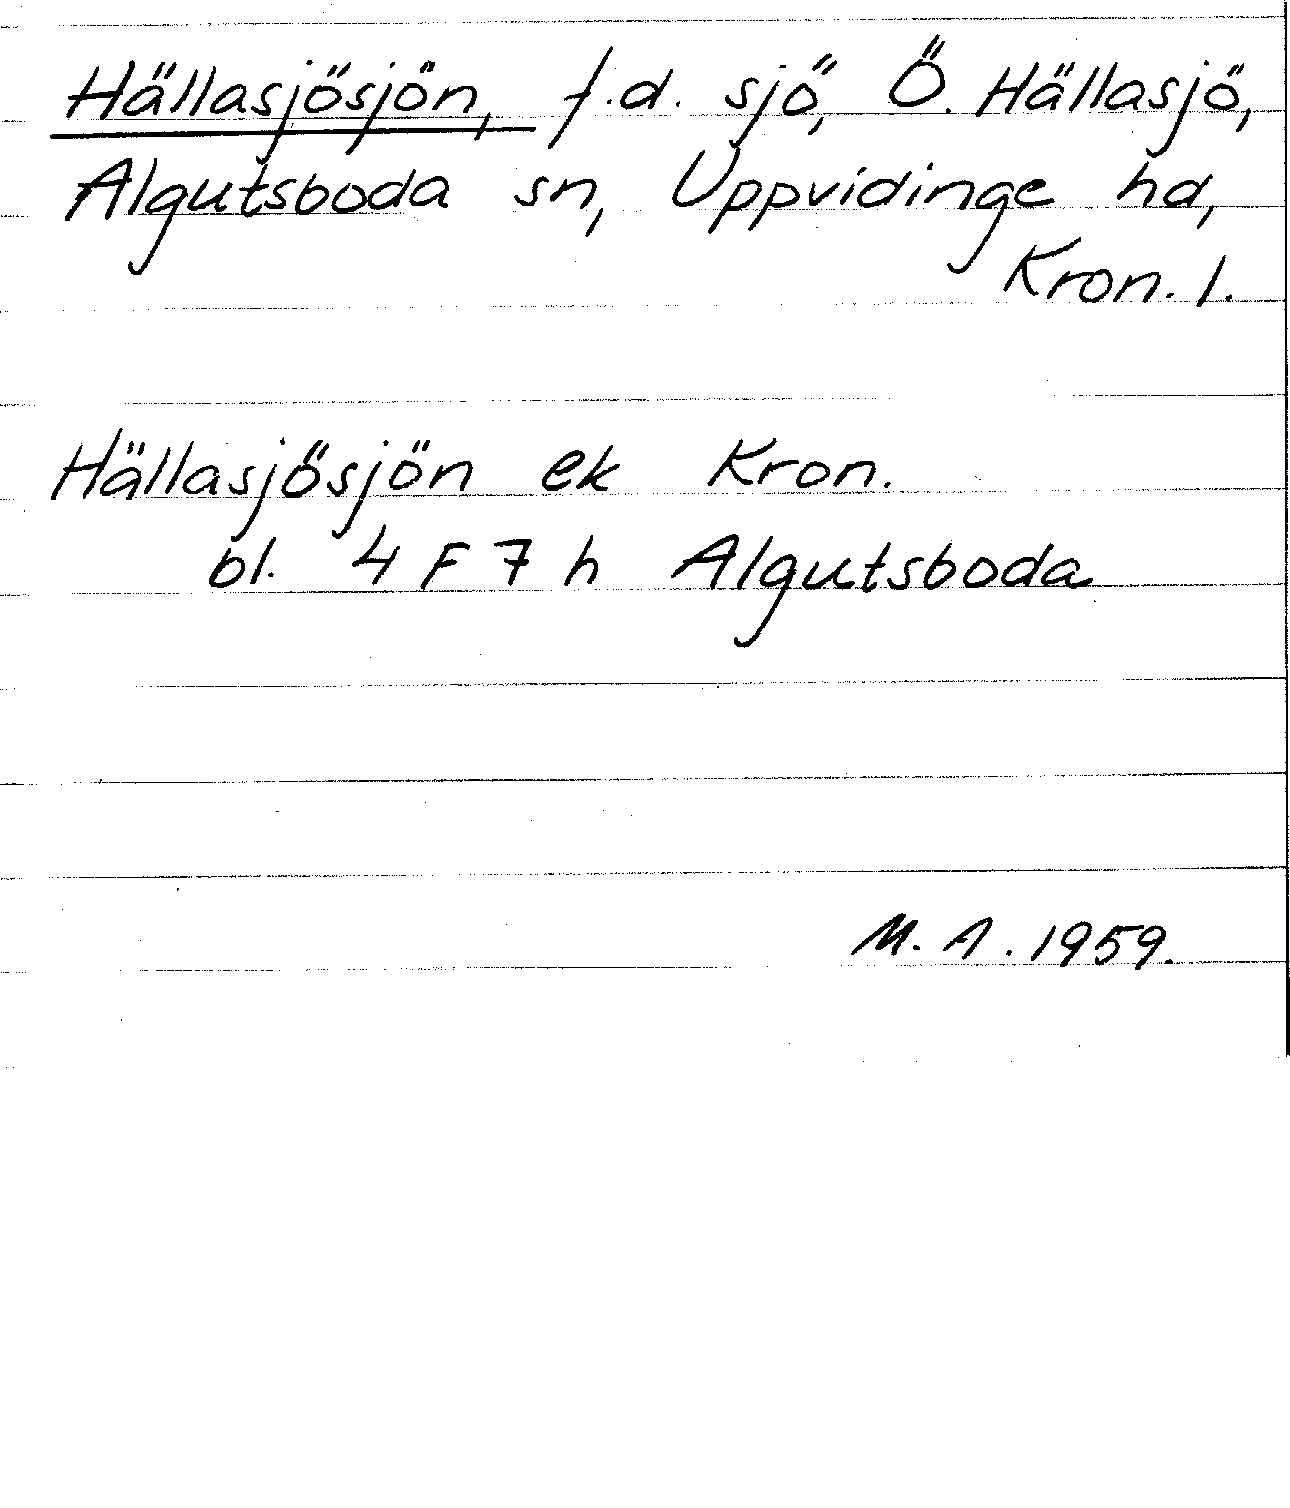 Hällasjösjön, f.d. sjö, Ö. Hällasjö,
Algutsboda sn, Uppvidinge hd,
Kron. l.
Hällasjösjön ek Kron.
bl. 4 F 7 h Algutsboda
M. A. 1959.